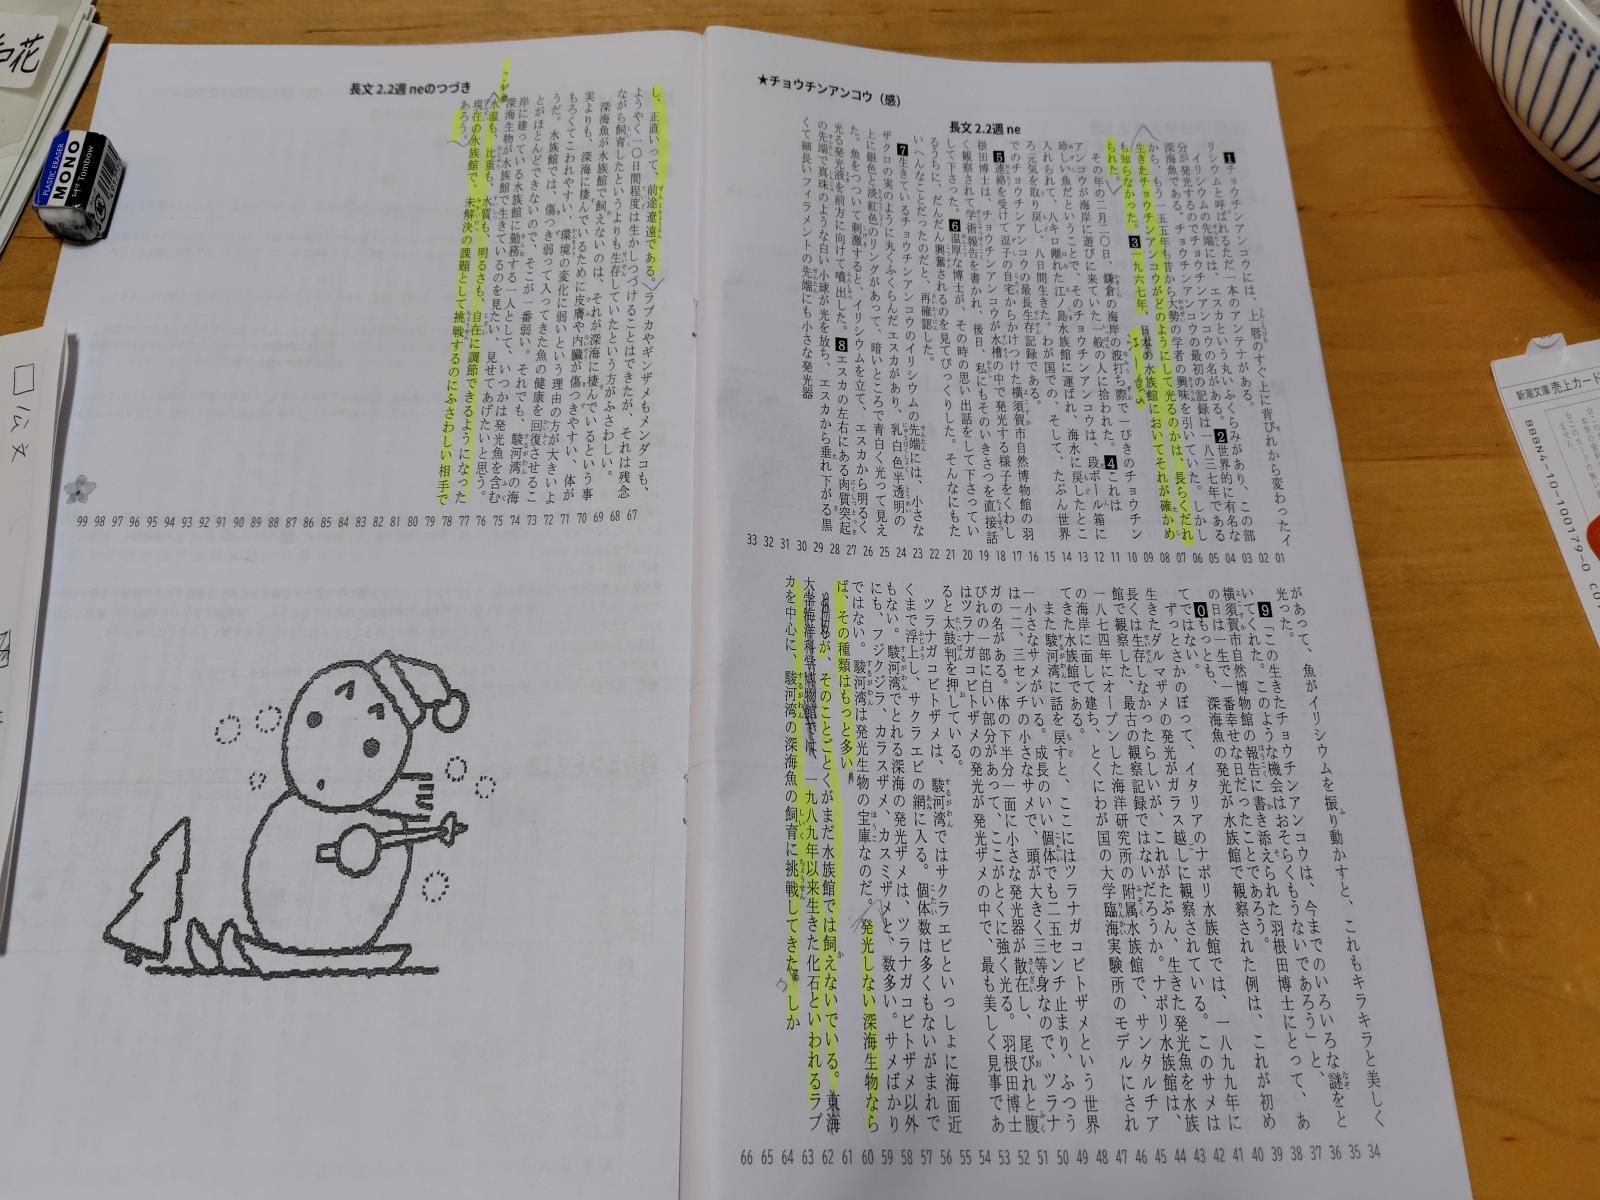 ★チョウチンアンコウ（感）
長文 2.2週 ne
1チョウチンアンコウには、上唇のすぐ上に背びれから変わったイ
リシウムと呼ばれるただ一本のアンテナがある。
イリシウムの先端には、エスカという丸いふくらみがあり、この部
分が発光するのでチョウチンアンコウの名がある。2世界的に有名な
深海魚である。チョウチンアンコウの最初の記録は一八三七年である
から、もう一五五年も昔から大勢の学者の興味を引いていた。しかし
生きたチョウチンアンコウがどのようにして光るのかは、長らくだれ
も知らなかった。3一九六七年、日本の水族館においてそれが確かめ
られた。
その年の二月二〇日、鎌倉の海岸の波打ち際で一ぴきのチョウチン
アンコウが海岸に遊びに来ていた一般の人に拾われた。4これは
珍しい魚だということで、そのチョウチンアンコウは、段ボール箱に
入れられ、八キロ離れた江ノ島水族館に運ばれ、海水に戻したとこ
ろ元気を取り戻し、八日間生きた。わが国での、そして、たぶん世界
でのチョウチンアンコウの最長生存記録である。
5連絡を受けて逗子の自宅からかけつけた横須賀市自然博物館の羽
根田博士は、チョウチンアンコウが水槽の中で発光する様子をくわし
く観察されて学術報告を書かれ、後日、私にもそのいきさつを直接話
して下さった。6温厚な博士が、その時の思い出話をして下さってい
るうちに、だんだん興奮されるのを見てびっくりした。そんなにもた
いへんなことだったのだと、再確認した。
7生きているチョウチンアンコウのイリシウムの先端には、小さな
ザクロの実のように丸くふくらんだエスカがあり、乳白色半透明の
上に銀色と淡紅色のリングがあって、暗いところで青白く光って見え
た。魚をつついて刺激すると、イリシウムを立て、エスカから明るく
光る発光液を前方に向けて噴出した。8エスカの左右にある肉質突起
の先端で真珠のような白い小球が光を放ち、エスカから垂れ下がる黒
くて細長いフィラメントの先端にも小さな発光器
01 02 03 04 05 06 07 08 09 10 11 12 13 14 15 16 17 18 19 20 21 22 23 24 25 26 27 28 29 30 31 32 33
があって、魚がイリシウムを振り動かすと、これもキラキラと美しく
光った。
9「この生きたチョウチンアンコウは、今までのいろいろな謎をと
いてくれた。このような機会はおそらくもうないであろう」と、
横須賀市自然博物館の報告に書き添えられた羽根田博士にとって、あ
の日は一生で一番幸せな日だったことであろう。
0もっとも、深海魚の発光が水族館で観察された例は、これが初め
てではない。
ずっとさかのぼって、イタリアのナポリ水族館では、一八九九年に
生きたダルマザメの発光がガラス越しに観察されている。このサメは
長くは生存しなかったらしいが、これがたぶん、生きた発光魚を水族
館で観察した、最古の観察記録ではないだろうか。ナポリ水族館は、
一八七四年にオープンした海洋研究所の附属水族館で、サンタルチア
の海岸に面して建ち、とくにわが国の大学臨海実験所のモデルにされ
てきた水族館である。
また駿河湾に話を戻すと、ここにはツラナガコビトザメという世界
一小さなサメがいる。成長のいい個体でも二五センチ止まり、ふつう
は一二、三センチの小さなサメで、頭が大きく三等身なので、ツラナ
ガの名がある。体の下半分一面に小さな発光器が散在し、尾びれと腹
びれの一部に白い部分があって、ここがとくに強く光る。羽根田博士
はツラナガコビトザメの発光が発光ザメの中で、最も美しく見事であ
ると太鼓判を押している。
ツラナガコビトザメは、駿河湾ではサクラエビといっしょに海面近
くまで浮上し、サクラエビの網に入る。個体数は多くもないがまれで
もない。駿河湾でとれる深海の発光ザメは、ツラナガコビトザメ以外
にも、フジクジラ、カラスザメ、カスミザメと、数多い。サメばかり
ではない。駿河湾は発光生物の宝庫なのだ。発光しない深海生物なら
ば、その種類はもっと多い。
が、そのことごとくがまだ水族館では飼えないでいる。東海
大学海洋科学博物館では、一九八九年以来生きた化石といわれるラブ
カを中心に、駿河湾の深海魚の飼育に挑戦してきた。しか
34 35 36 37 38 39 40 41 42 43 44 45 46 47 48 49 50 51 52 53 54 55 56 57 58 59 60 61 62 63 64 65 66
長文 2.2週 neのつづき
し、正直いって、前途遼遠である。ラブカやギンザメもメンダコも、
ようやく一〇日間程度は生かしつづけることはできたが、それは残念
ながら飼育したというよりも生存していたという方がふさわしい。
深海魚が水族館で飼えないのは、それが深海に棲んでいるという事
実よりも、深海に棲んでいるために皮膚や内臓が傷つきやすい、体が
もろくてこわれやすい、環境の変化に弱いという理由の方が大きいよ
うだ。水族館では、傷つき弱って入ってきた魚の健康を回復させるこ
とがほとんどできないので、そこが一番弱い。それでも、駿河湾の海
岸に建っている水族館に勤務する一人として、いつかは発光魚を含む
深海生物が水族館で生きているのを見たい、見せてあげたいと思う。
水温も、比重も、水質も、明るさも、自在に調節できるようになった
現在の水族館で、未解決の課題として挑戦するのにふさわしい相手で
あろう。
67 68 69 70 71 72 73 74 75 76 77 78 79 80 81 82 83 84 85 86 87 88 89 90 91 92 93 94 95 96 97 98 99
PLASTIC ERASER
MONO
Tombow
新潮文庫 売上カード